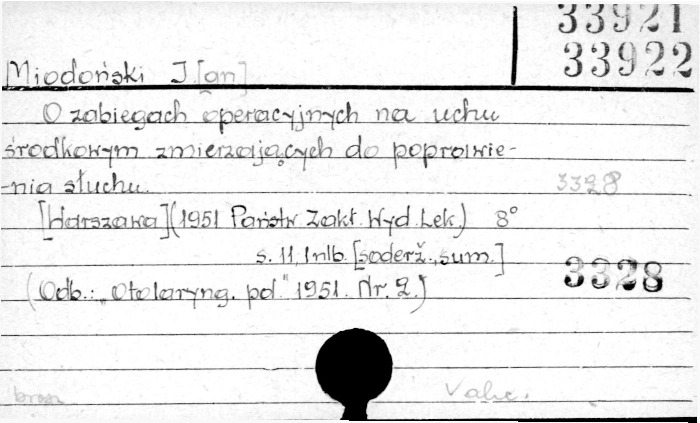 33921
33922
Miodoński J[an]
O zabiegach operacyjnych na uchu
środkowym zmierzających do poprawie-
nia słuchu.
3328
[Warszawa] (1951 Państw. Zakł. Wyd. Lek.) 8°
s. 11, 1 nlb. [soderž., sum.]
3328
(Odb.: „Otolaryng. pol." 1951. Nr. 2.)